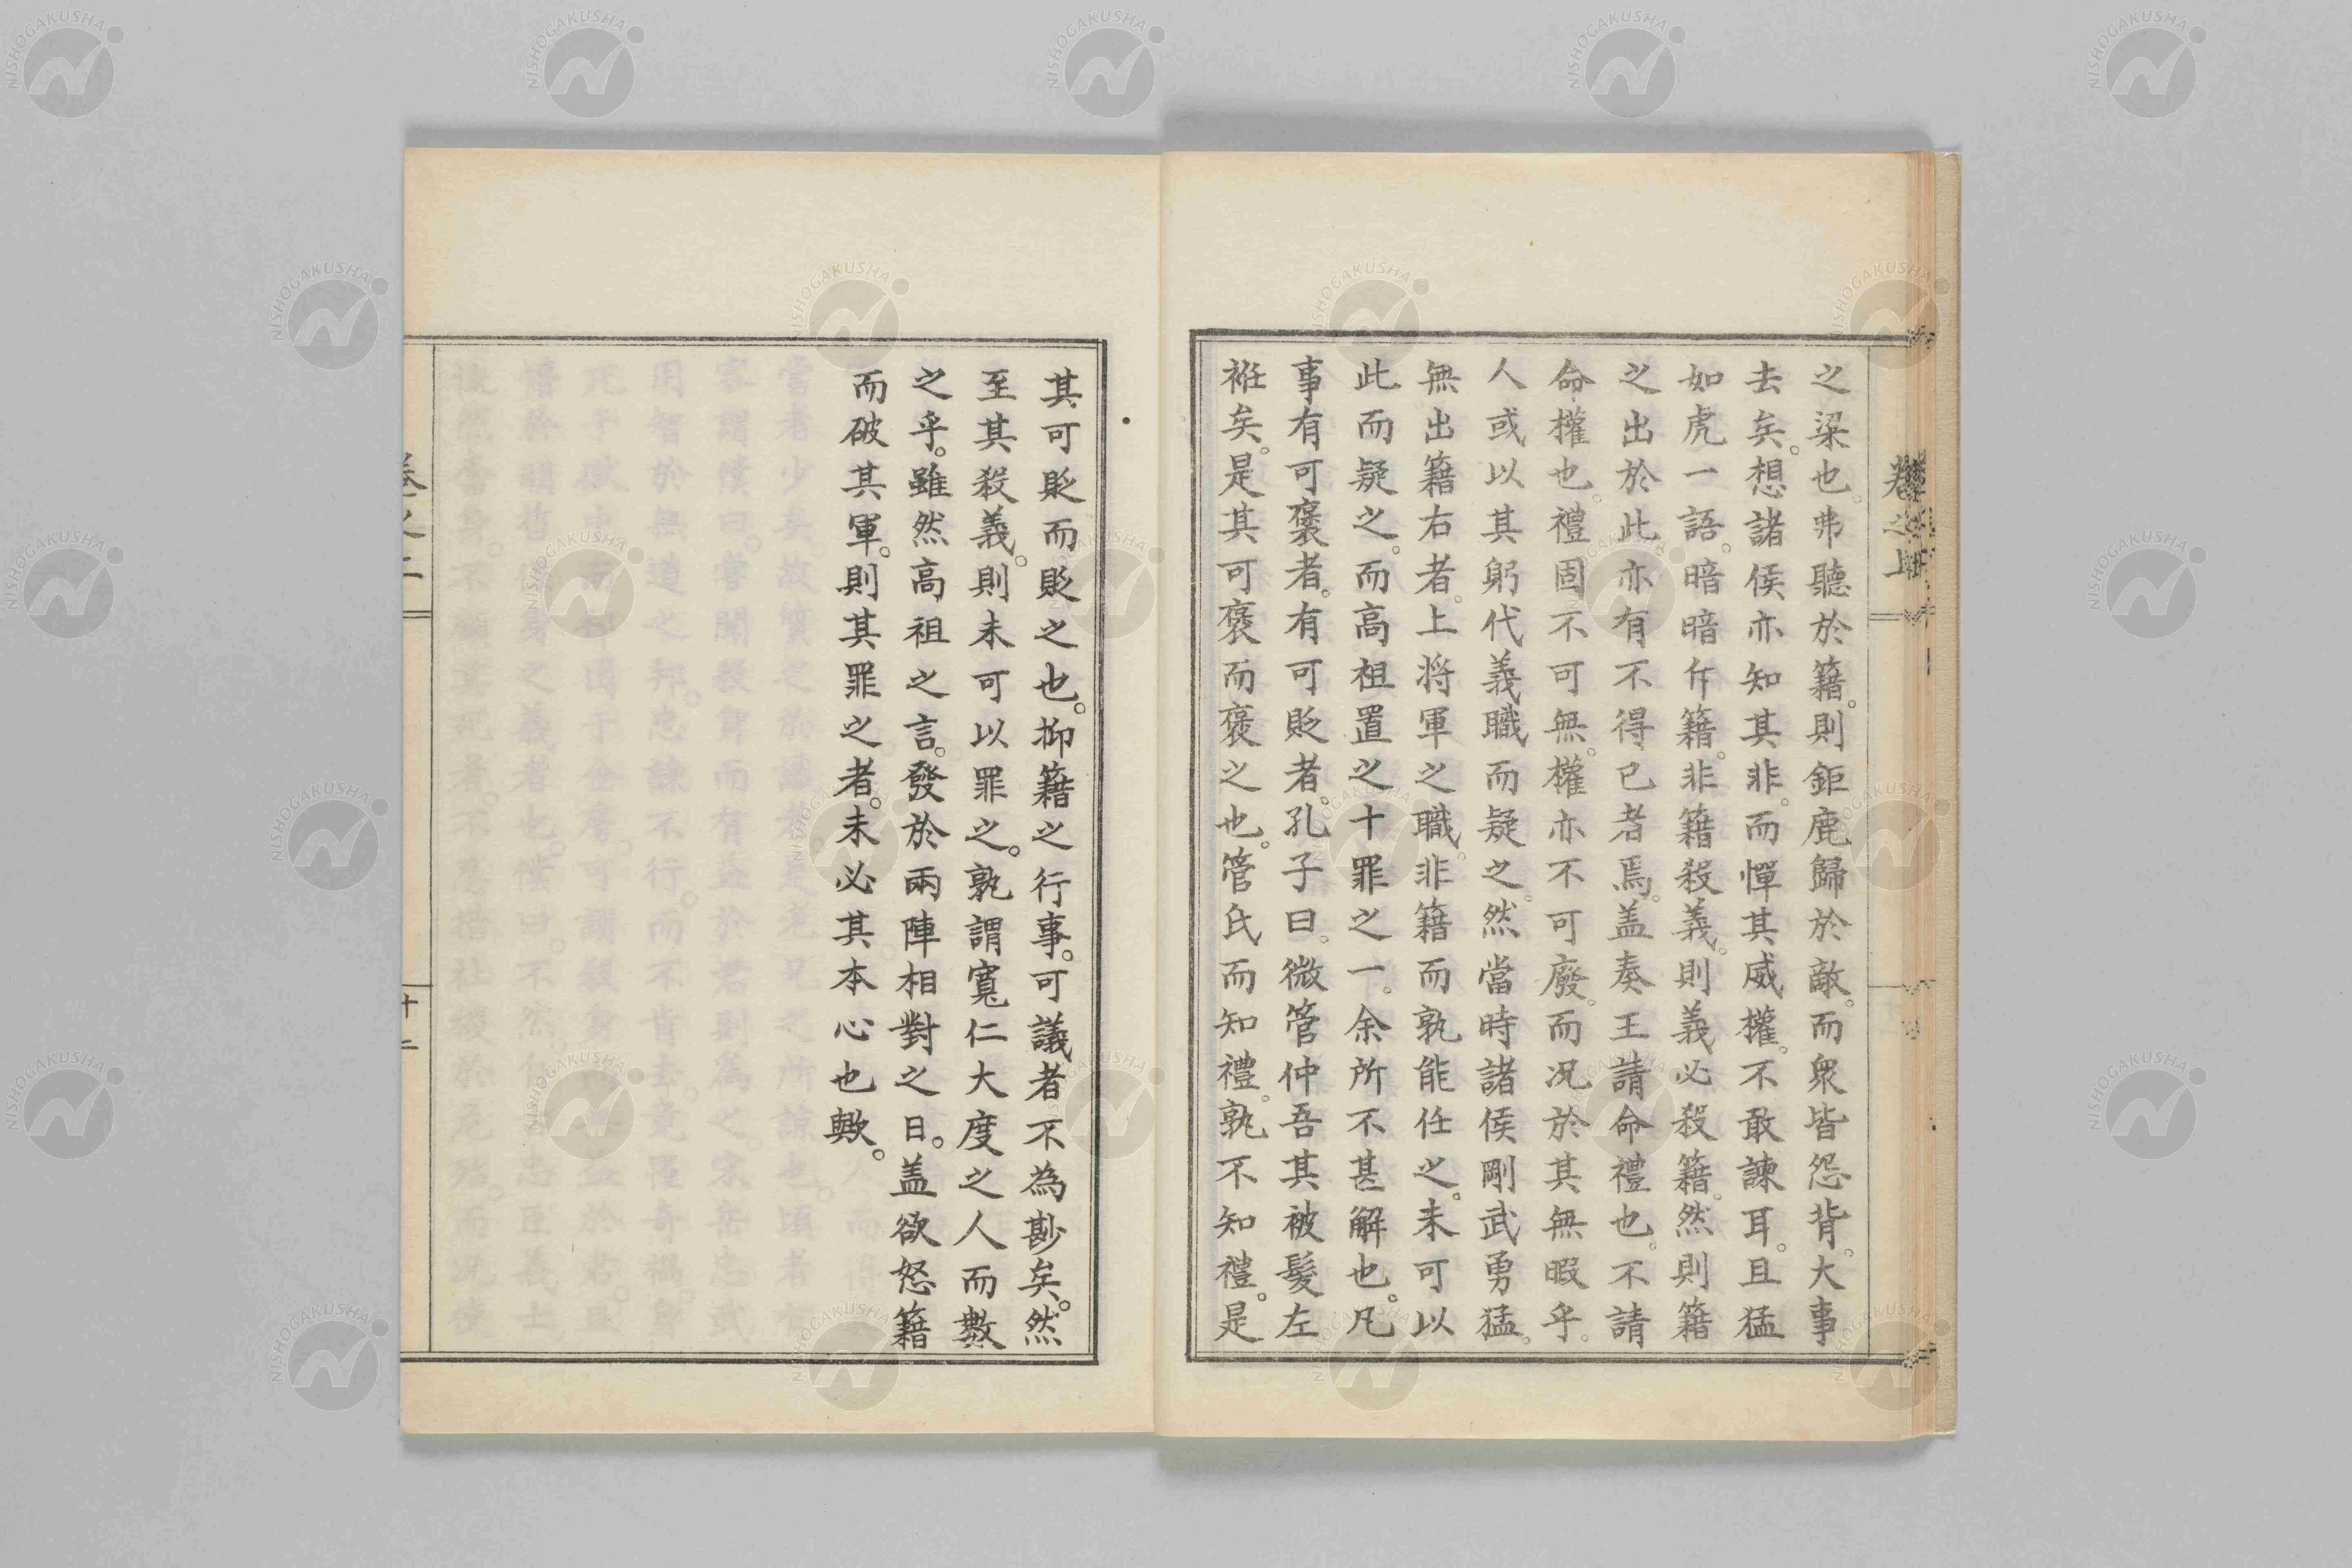 之梁也。弗聽於籍。則鉅鹿歸於敵。而衆皆怨背。大事
去矣。想諸侯亦知其非。而憚其威權。不敢諫耳。且猛
如虎一語。暗暗斥籍。非籍殺義。則義必殺籍。然則籍
之出於此亦有不得已者焉。盖奏王請命禮也。不請
命權也。禮固不可無。權亦不可廢。而况於其無暇乎。
人或以其躬代義職而疑之。然當時諸侯剛武勇猛。
無出籍右者。上将軍之職。非籍而孰能任之。未可以
此而疑之。而高祖置之十罪之一。余所不甚解也。凡
事有可褒者。有可貶者。孔子曰。微管仲吾其被髮左
袵矣。是其可褒而褒之也。管氏而知禮。孰不知禮。是
其可貶而貶之也。抑籍之行事。可議者不為尠矣。然
至其殺義。則未可以罪之。孰謂寬仁大度之人而數
之乎。雖然高祖之言。發於兩陣相對之日。盖欲怒籍
而破其軍。則其罪之者。未必其本心也歟。
卷之上
十二
NISHOGAKUSHA